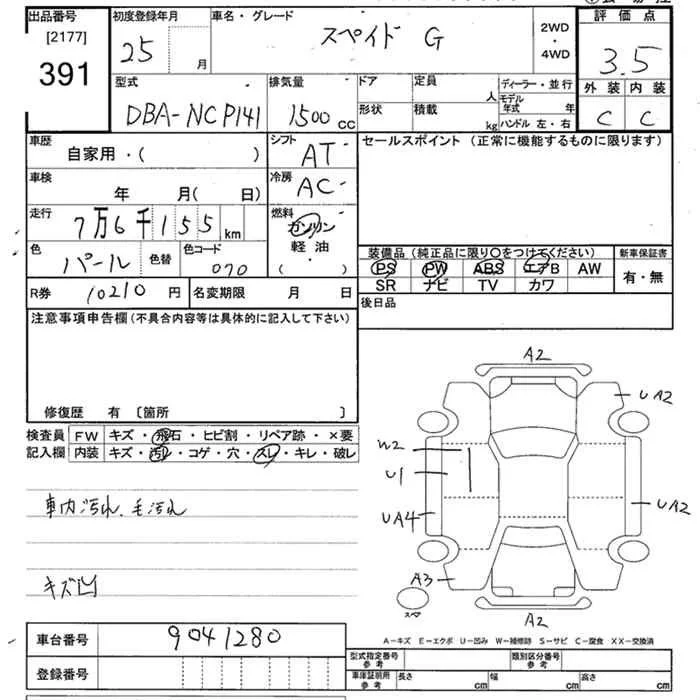 出品番号 初度登録年月 車名・グレード 評価点
[2177]
391
25 月
スペイド G
2WD
・
4WD
3.5
外装 内装
C C
型式 排気量 ドア 定員 人 ディーラー・並行
DBA-NCP141 1500 CC
形状 積載 kg モデル年式 年
ハンドル 左・右
車歴 シフト セールスポイント (正常に機能するものに限ります)
自家用・( ) AT
車検 冷房
年 月( 日) AC
走行 燃料
7万6千155 km ガソリン
軽油
・
( )
色 色替 色コード
パール 070
装備品(純正品に限り〇をつけてください) 新車保証書
PS PW ABS エアB AW 有・無
SR ナビ TV カワ
R券 10210 円 名変期限 月 日
後日品
注意事項申告欄(不具合内容等は具体的に記入して下さい)
修復歴 有 〔箇所 〕
検査員 FW キズ・飛石・ヒビ割・リペア跡・×要
記入欄 内装 キズ・汚レ・コゲ・穴・スレ・キレ・破レ
車内汚れ、毛汚れ
キズ凹
A2
UA2
W2
U1
UA4
UA2
A3
スペア
A2
A−キズ E−エクボ U−凹み W−補修跡 S−サビ C−腐食 XX−交換済
車台番号 9041280
登録番号
型式指定番号 参考 類別区分番号 参考
車庫証明用 参考 長さ cm 幅 cm 高さ cm